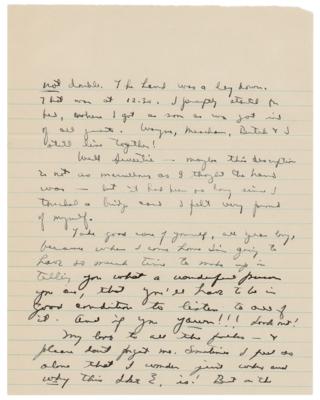 not double. The hand was a lay down.
That was at 12:30. I promptly started for
bed, where I got as soon as we got rid
of all guests. Wayne, Meacham, Butch & I
still live together!
Well Sweetie — maybe this description
is not as marvellous as I thought the hand
was — but it had been so long since I
touched a bridge card I felt very proud
of myself.
Take good care of yourself, all you boys,
because when I come home I'm going to
have so much time to make up in
telling you what a wonderful person
you are, that you'll have to be in
good condition to listen to all of
it. And if you yawn!!! Look out!
My love to all the folks — &
please don't forget me. Sometimes I feel so
alone that I wonder just when and
why this is! But in the